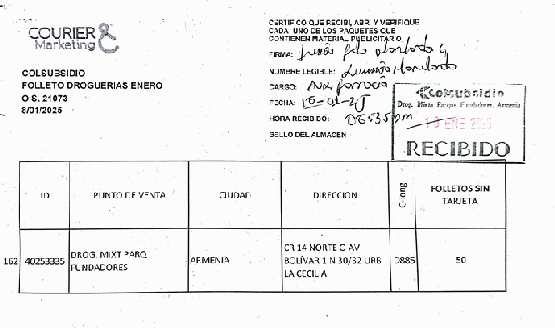 COURIER
Marketing
COLSUBSIDIO
FOLLETO DROGUERIAS ENERO
O.S. 21073
8/01/2025
CERTIFICO QUE RECIBI, ABRI Y VERIFIQUE
CADA UNO DE LOS PAQUETES QUE
CONTIENEN MATERIAL PUBLICITARIO
FIRMA:
NOMBRE LEGIBLE:
CARGO:
FECHA: 10-01-25
HORA RECIBIDO: pm
SELLO DEL ALMACEN
Colsubsidio
Drog. Mixta Parque Fundadores, Armenia
10 ENE 2025
RECIBIDO
ID PUNTO DE VENTA CIUDAD DIRECCION C-ong FOLLETOS SIN TARJETA
162 40253335 DROG. MIXT PARQ FUNDADORES ARMENIA CR 14 NORTE C AV BOLIVAR 1 N 30/32 URB LA CECILIA D885 50